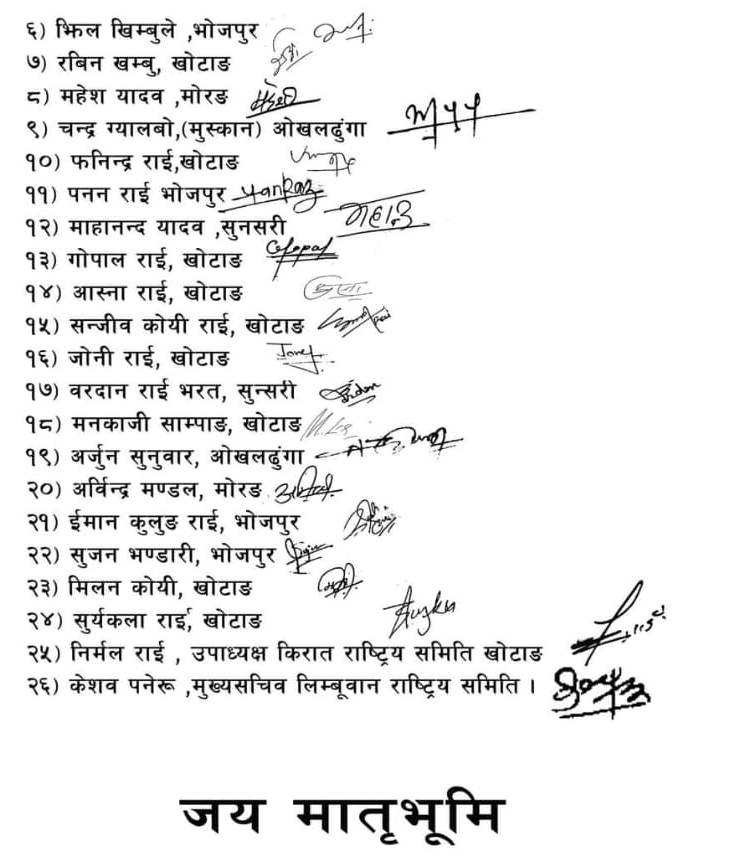 ६) झिल खिम्बुले ,भोजपुर
७) रबिन खम्बु, खोटाङ
८) महेश यादव ,मोरङ
९) चन्द्र ग्यालबो,(मुस्कान) ओखलढुंगा
१०) फनिन्द्र राई,खोटाङ
११) पनन राई भोजपुर
१२) माहानन्द यादव ,सुनसरी
१३) गोपाल राई, खोटाङ Gopal
१४) आस्ना राई, खोटाङ
१५) सन्जीव कोयी राई, खोटाङ
१६) जोनी राई, खोटाङ
१७) वरदान राई भरत, सुन्सरी
१८) मनकाजी साम्पाङ, खोटाङ
१९) अर्जुन सुनुवार, ओखलढुंगा
२०) अर्विन्द्र मण्डल, मोरङ
२१) ईमान कुलुङ राई, भोजपुर
२२) सुजन भण्डारी, भोजपुर
२३) मिलन कोयी, खोटाङ
२४) सुर्यकला राई, खोटाङ
२५) निर्मल राई , उपाध्यक्ष किरात राष्ट्रिय समिति खोटाङ
२६) केशव पनेरू ,मुख्यसचिव लिम्बूवान राष्ट्रिय समिति ।
जय मातृभूमि